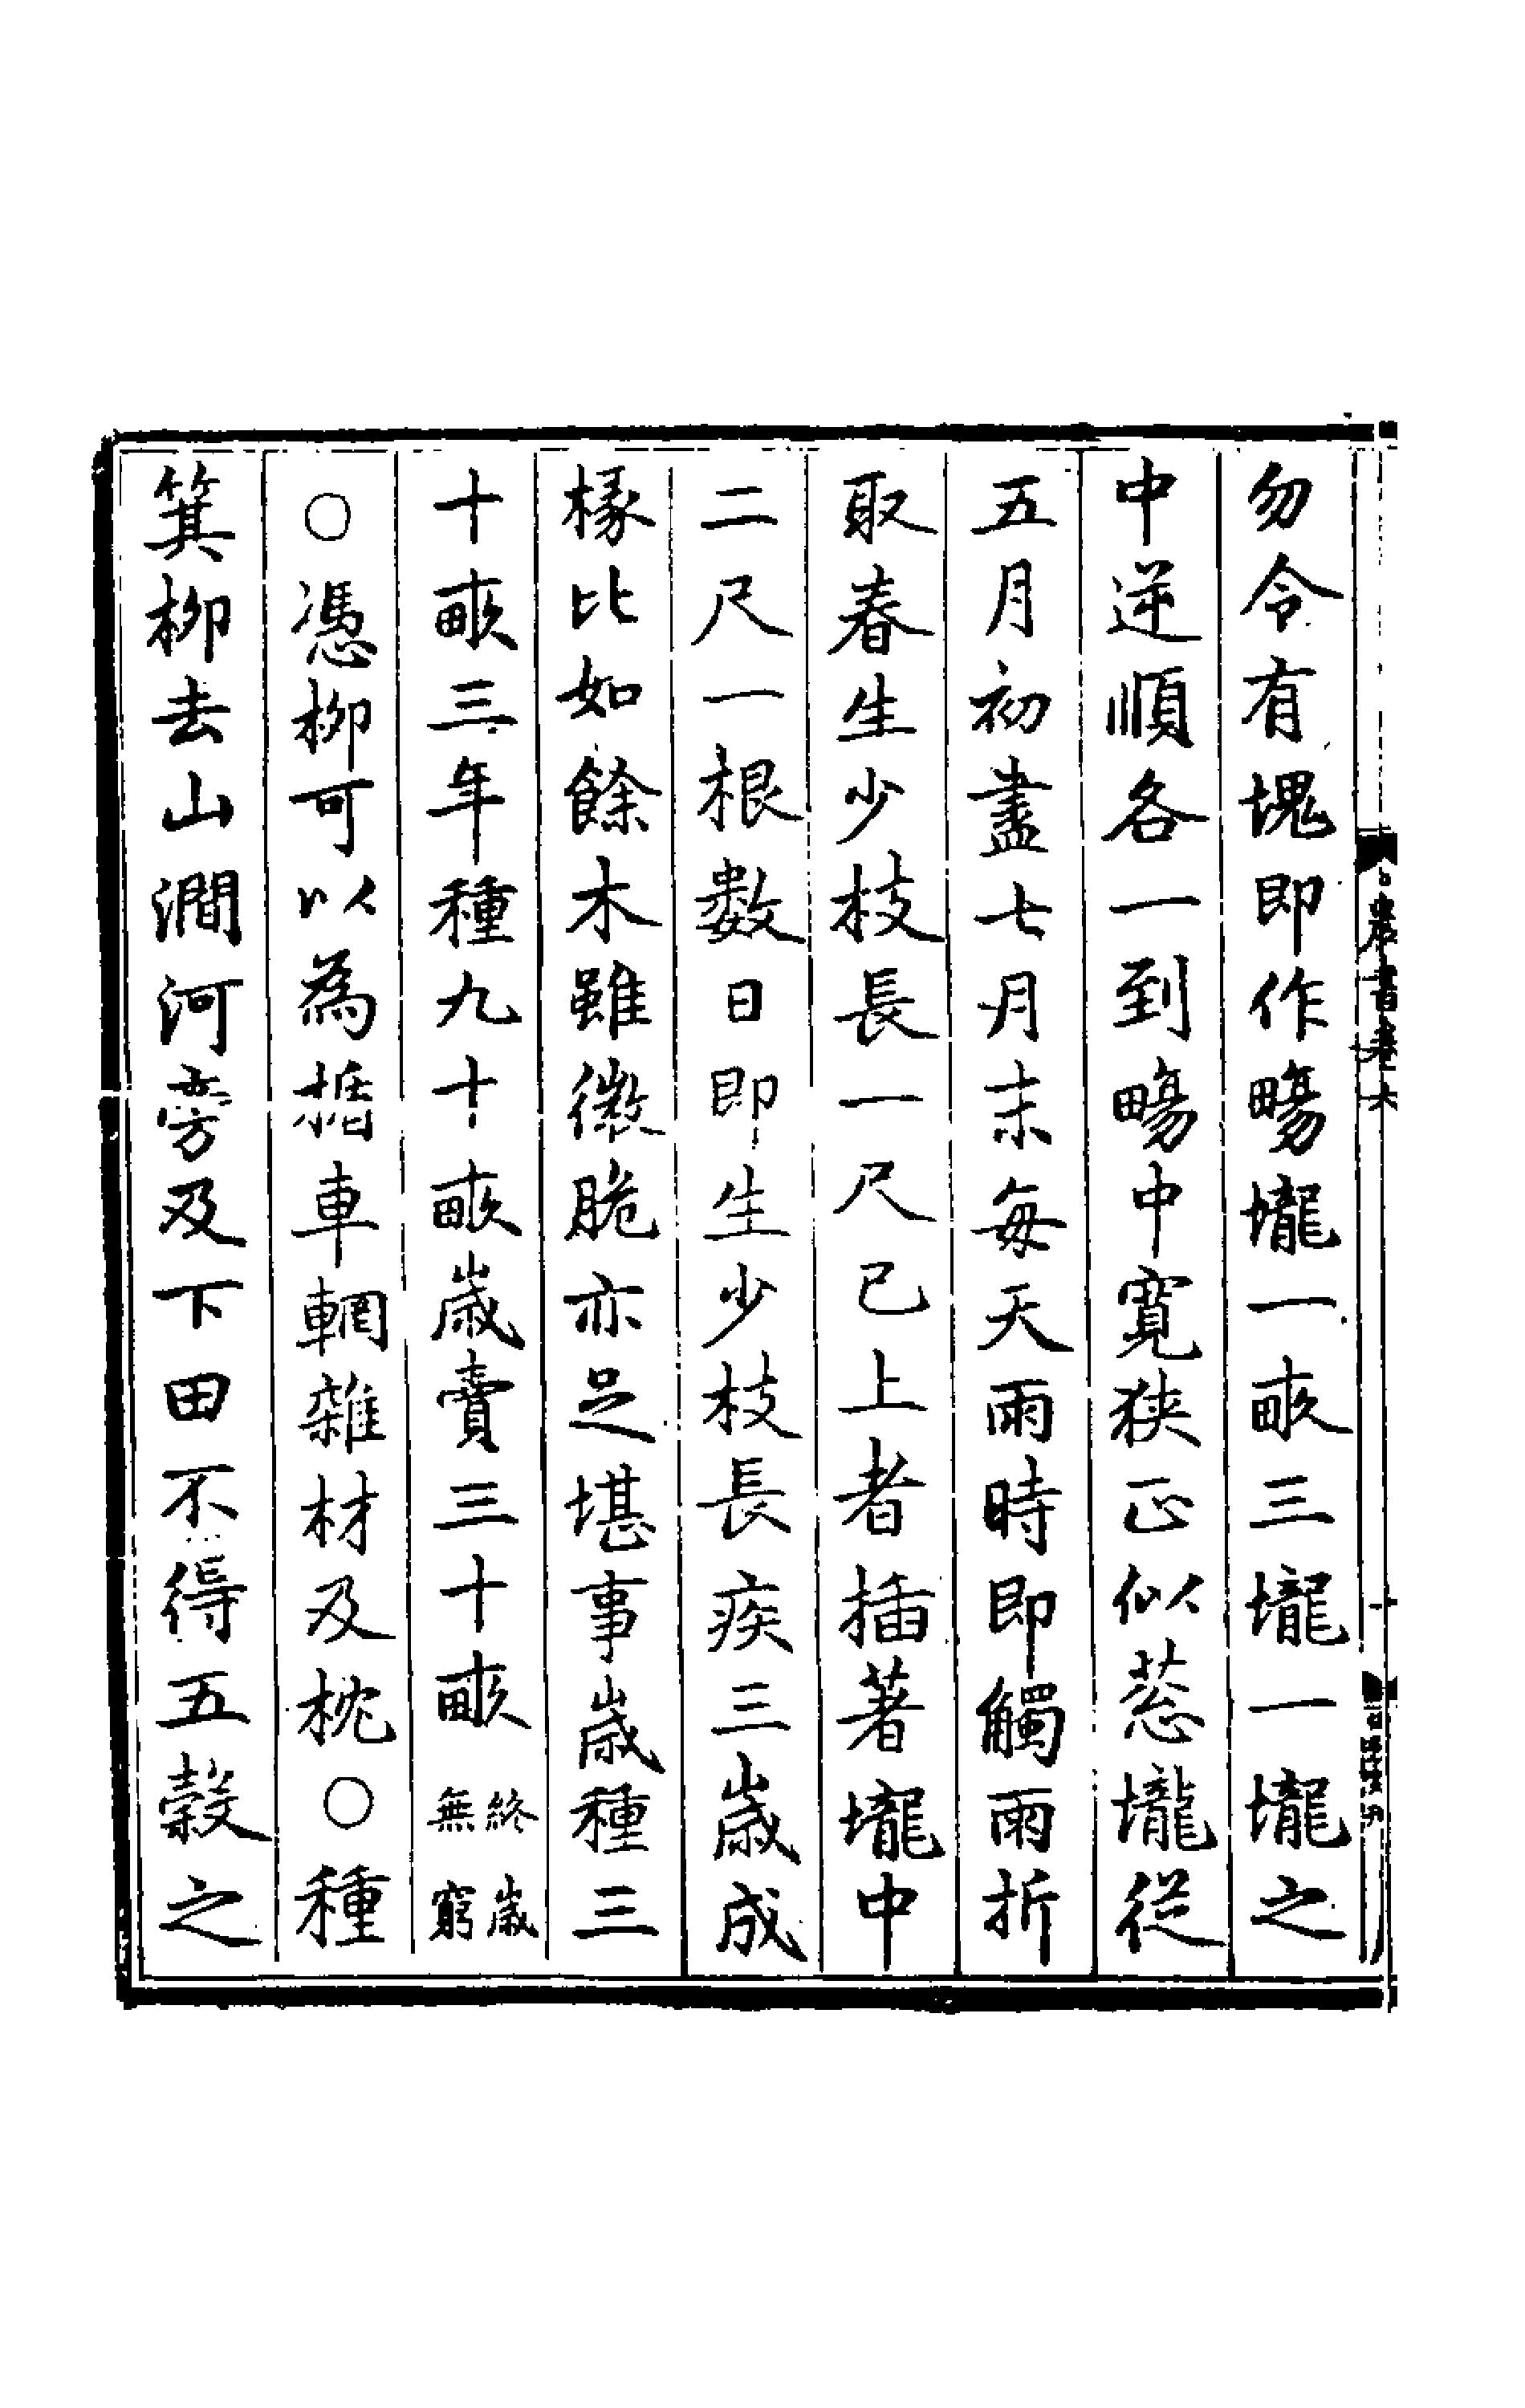 勿令有塊即作畼壠一畞三壠一壠之
中逆順各一到畼中寛狹正似葱壠從
五月初盡七月末每天雨時即觸雨折
取春生少枝長一尺已上者插著壠中
二尺一根數日即生少枝長疾三歲成
椽比如餘木雖微脆亦足堪事歲種三
十畞三年種九十畞歲賣三十畞終歲無窮
○憑柳可以為楯車輞雜材及枕○種
箕柳去山澗河旁及下田不得五穀之
農書卷六
十